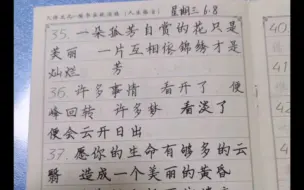 星期三 6.8
35. 一朵孤芳自赏的花只是
美丽 一片互相依锦绣才是
灿烂 芳
36 许多事情 看开了 便
峰回转 许多梦 看淡了
便会云开日出
37. 愿你的生命有够多的云
翳 造成一个美丽的黄昏
40
41